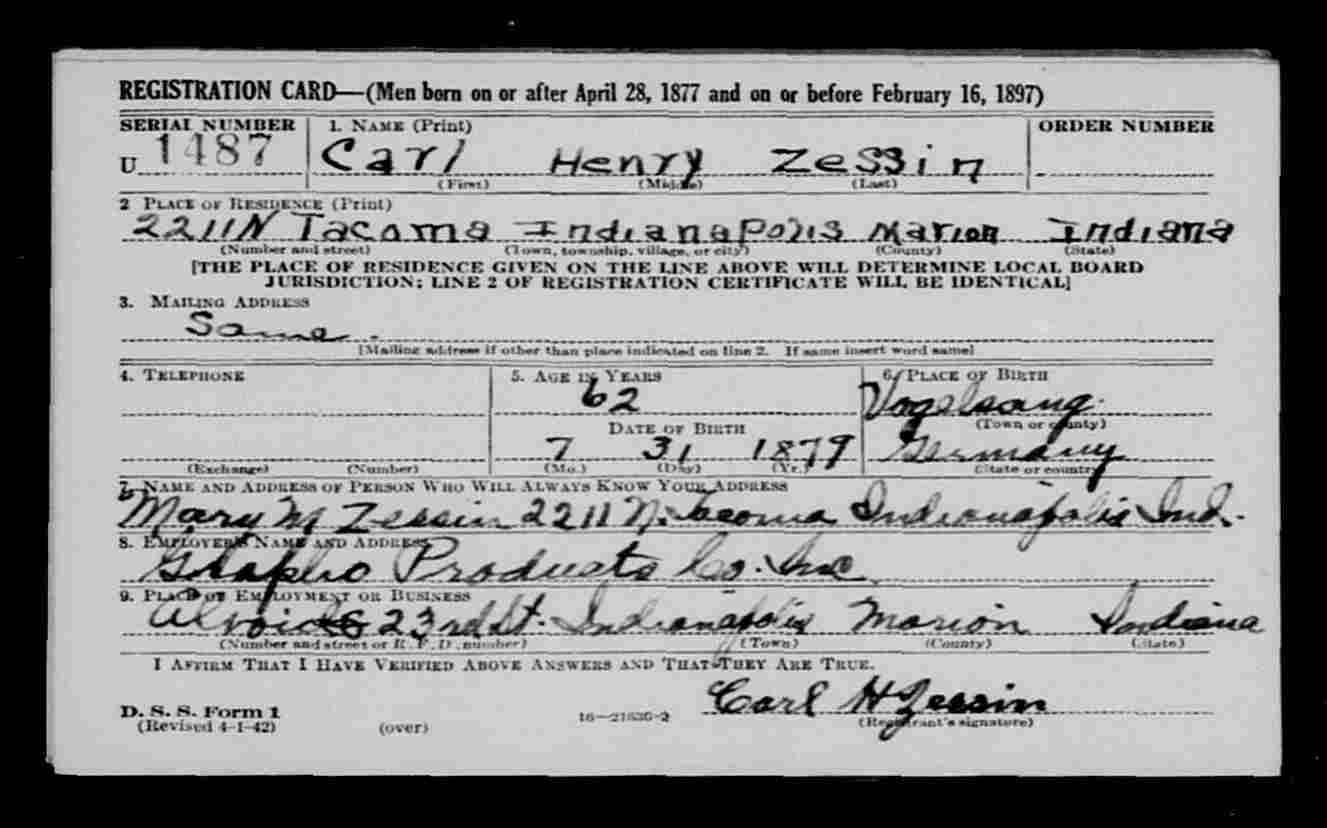 REGISTRATION CARD—(Men born on or after April 28, 1877 and on or before February 16, 1897)
SERIAL NUMBER 1. NAME (Print) ORDER NUMBER
U 1487 Carl Henry Zessin
(First) (Middle) (Last)
2 PLACE OF RESIDENCE (Print)
2211 N Tacoma Indianapolis Marion Indiana
(Number and street) (Town, township, village, or city) (County) (State)
[THE PLACE OF RESIDENCE GIVEN ON THE LINE ABOVE WILL DETERMINE LOCAL BOARD
JURISDICTION; LINE 2 OF REGISTRATION CERTIFICATE WILL BE IDENTICAL]
3. MAILING ADDRESS
Same.
[Mailing address if other than place indicated on line 2. If same insert word same]
4. TELEPHONE 5. AGE IN YEARS 6. PLACE OF BIRTH
62 Vogelsang.
DATE OF BIRTH (Town or county)
7 31 1879 Germany
(Exchange) (Number) (Mo.) (Day) (Yr.) (State or country)
7. NAME AND ADDRESS OF PERSON WHO WILL ALWAYS KNOW YOUR ADDRESS
Mary M Zessin 2211 N. Tacoma Indianapolis Ind.
8. EMPLOYER'S NAME AND ADDRESS
Products Co. Inc
9. PLACE OF EMPLOYMENT OR BUSINESS
23rd St. Indianapolis Marion Indiana
(Number and street or R. F. D. number) (Town) (County) (State)
I AFFIRM THAT I HAVE VERIFIED ABOVE ANSWERS AND THAT THEY ARE TRUE.
Carl H Zessin
D. S. S. Form 1
(Revised 4-1-42) (over) 16—21630-2 (Registrant's signature)